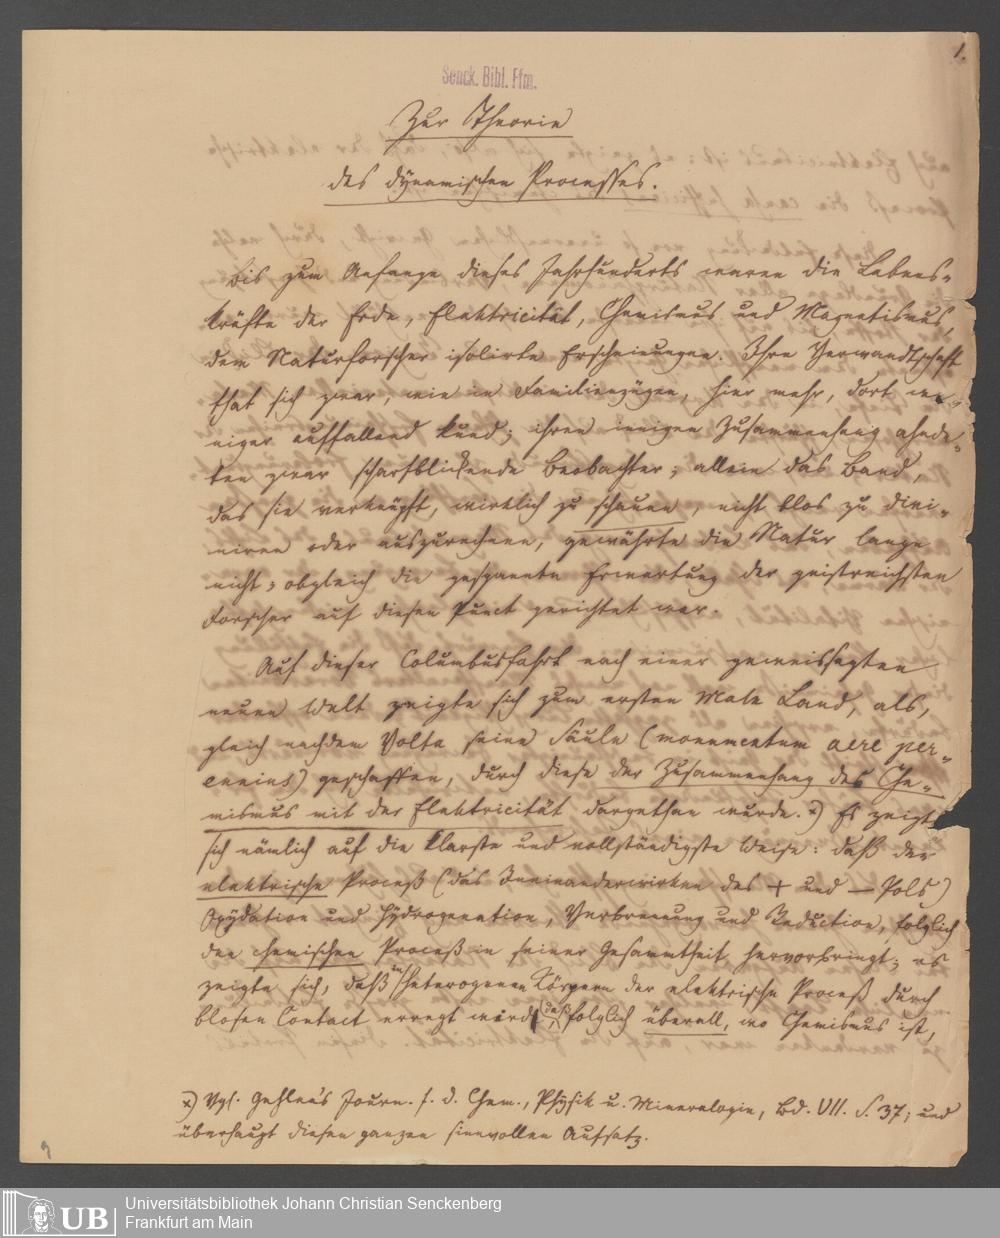 1.
Senck. Bibl. Ffm.
Zur Theorie
des dÿnamischen Processes.
Bis zum Anfange dieses Jahrhunderts waren die Lebens-
kräfte der Erde, Elektricität, Chemismus und Magnetismus,
dem Naturforscher isolirte Erscheinungen. Ihre Verwandtschaft
that sich zwar, wie in Familienzügen, hier mehr, dort we-
niger auffallend kund; ihren innigen Zusammenhang ahnde-
ten zwar scharfblickende Beobachter; allein das Band,
das sie verknüpft, wirklich zu schauen, nicht blos zu divi-
niren oder auszurechnen, gewährte die Natur lange
nicht; obgleich die gespannte Erwartung der geistreichsten
Forscher auf diesen Punct gerichtet war.
Auf dieser Columbusfahrt nach einer geweissagten
neuen Welt zeigte sich zum ersten Male Land, als,
gleich nachdem Volta seine Säule (monumentum aere per-
ennius) geschaffen, durch diese der Zusammenhang des Che-
mismus mit der Elektricität dargethan wurde.*) Es zeigte
sich nämlich auf die klarste und vollständigste Weise: daß der
elektrische Proceß (das Ineinanderwirken des + und — Pols)
Oxÿdation und Hÿdrogenation, Verbrennung und Reduction, folglich
den chemischen Proceß in seiner Gesammtheit hervorbringt; es
zeigte sich, daß in heterogenen Körpern der elektrische Proceß durch
blosen Contact erregt wird, daß folglich überall, wo Chemismus ist,
*) Vgl. Gehlen's Journ. f. d. Chem., Phÿsik u. Mineralogie, Bd. VII. S. 37; und
überhaupt diesen ganzen sinnvollen Aufsatz.
UB
Universitätsbibliothek Johann Christian Senckenberg
Frankfurt am Main